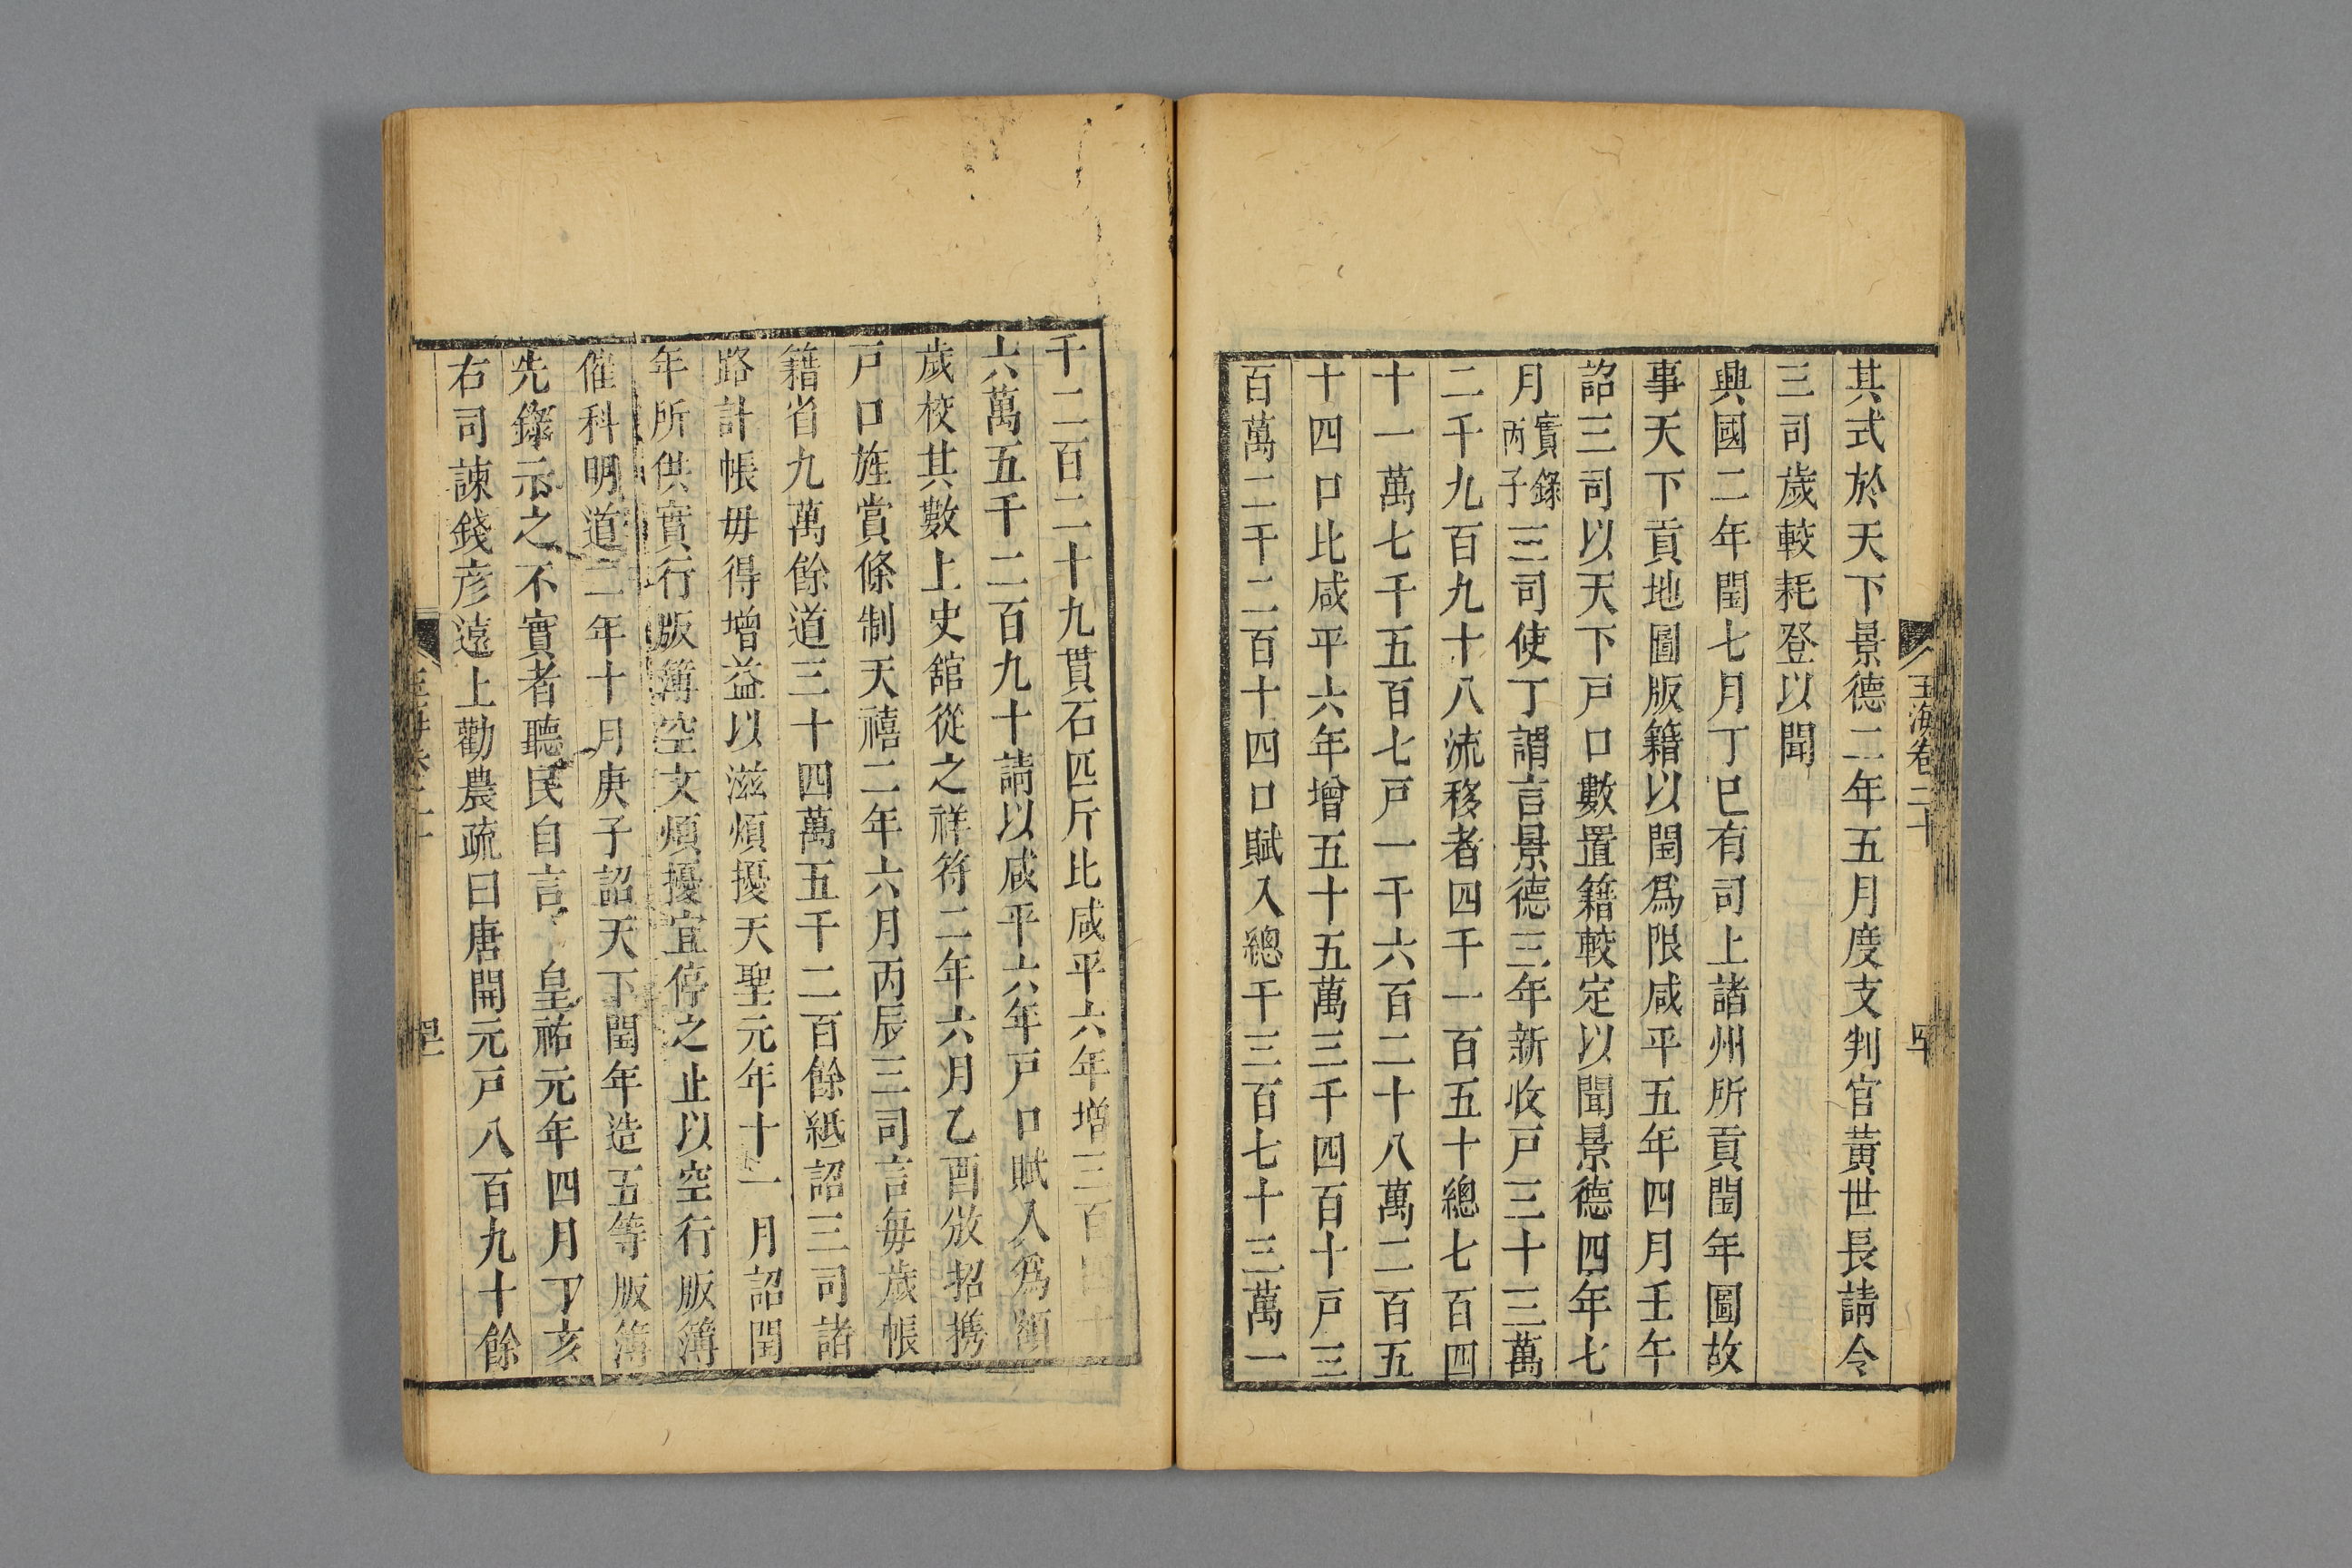 玉海卷二十
其式於天下景德二年五月度支判官黃世長請令
三司歲較耗登以聞
興國二年閏七月丁巳有司上諸州所貢閏年圖故
事天下貢地圖版籍以閏爲限咸平五年四月壬午
詔三司以天下戸口數置籍較定以聞景德四年七
月實錄丙子三司使丁謂言景德三年新收戸三十三萬
二千九百九十八流移者四千一百五十總七百四
十一萬七千五百七戸一千六百二十八萬二百五
十四口比咸平六年增五十五萬三千四百十戸三
百萬二千二百十四口賦入總干三百七十三萬一
千二百二十九貫石匹斤比咸平六年增三百四十
六萬五千二百九十請以咸平六年戸口賦入爲額
歲校其數上史舘從之祥符二年六月乙酉攽招携
戸口旌賞條制天禧二年六月丙辰三司言每歲帳
籍省九萬餘道三十四萬五千二百餘紙詔三司諸
路計帳毋得增益以滋煩擾天聖元年十一月詔閏
年所供實行版簿空文煩擾宜停之止以空行版簿
催科明道二年十月庚子詔天下閏年造五等版簿
先錄示之不實者聽民自言皇祐元年四月丁亥
右司諫錢彦遠上勸農疏曰唐開元戸八百九十餘